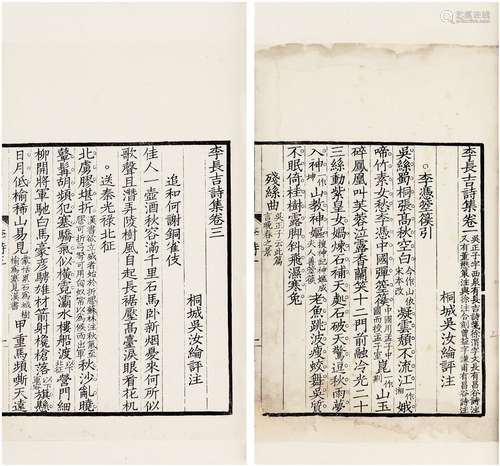 李長吉詩集卷一
桐城吳汝綸評注
李憑箜篌引
吳絲蜀桐張高秋空白凝雲頹不流江娥
啼竹素女愁李憑中國彈箜篌崑山玉
碎鳳凰叫芙蓉泣露香蘭笑十二門前融冷光二十
三絲動紫皇女媧煉石補天處石破天驚逗秋雨夢
入神山教神嫗老魚跳波瘦蛟舞吳質
不眠倚桂樹露脚斜飛濕寒兔
殘絲曲
李長吉詩集卷三
桐城吳汝綸評注
追和何謝銅雀妓
佳人一壺酒秋容滿千里石馬臥新烟憂來何所似
歌聲且潛弄陵樹風自起長裾壓高臺淚眼看花机
送秦光祿北征
北虜膠堪折漢書欲立威者始於折膠蘇林注秋氣至膠可折弓弩可用匈奴常以為候而出軍秋沙亂曉
鼙髯胡頻犯塞驕氣似橫霓灞水樓船渡營門細
柳開將軍馳白馬豪彥騁雄材箭射欃槍落旗懸
日月低榆稀山易見甲重馬頻嘶天遠